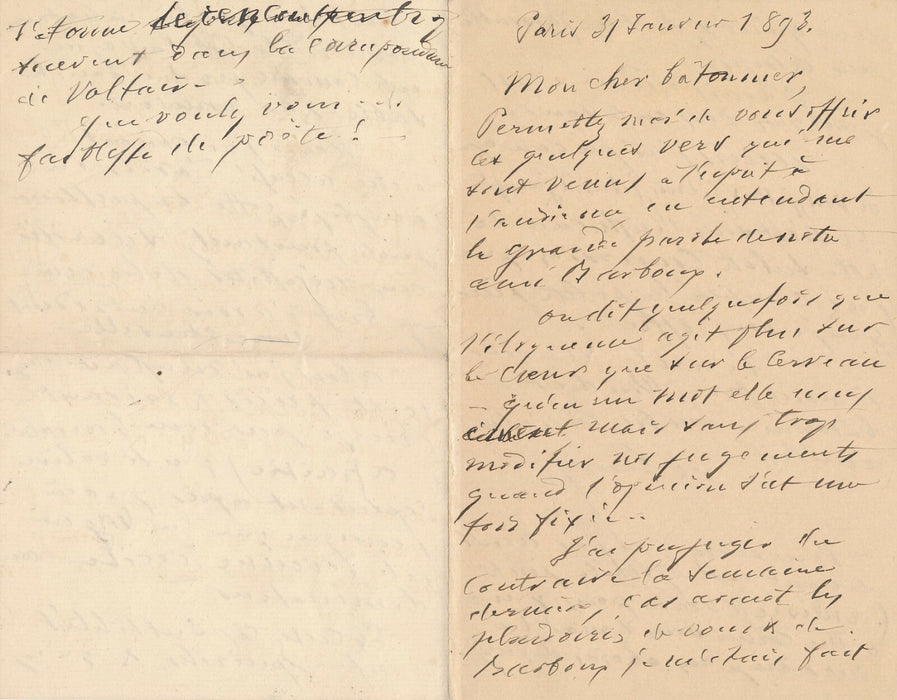 Paris 31 Janvier 1893.
Mon cher bâtonnier,
Permettez moi de vous offrir
les quelques vers qui me
sont venus à l'esprit à
l'audience, en entendant
la grande parole de notre
ami Barboux.
On dit quelquefois que
l'éloquence agit plus sur
le cœur que sur le cerveau
- qu'en un mot elle nous
émeut mais sans trop
modifier nos jugements
quand l'opinion s'est une
fois fixée..
J'ai pu juger du
contraire la semaine
dernière, car avant les
plaidoiries de vous & de
Barboux je m'étais fait
souvent dans la
de Voltaire
que voulez vous ...
faiblesse de poète !